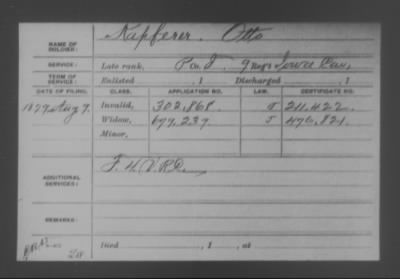 NAME OF SOLDIER: Kapferer. Otto
SERVICE: Late rank, P Co. I. 9 Reg't Iowa Cav,
TERM OF SERVICE: Enlisted , 1 Discharged , 1
DATE OF FILING. CLASS. APPLICATION NO. LAW. CERTIFICATE NO.
1879 Aug 7. Invalid, 302,868 211.422.
Widow, 677,237 476,821
Minor,
ADDITIONAL SERVICES:
REMARKS:
Died , 1 , at